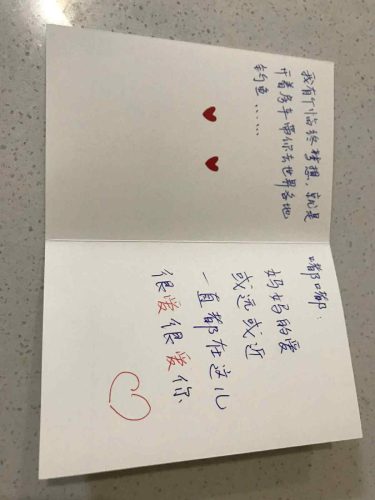 我有个终梦想，就是
开着房车带你去世界各地
钓鱼……
嘟嘟：
妈妈的爱
或远或近
一直都在这儿
很爱很爱你